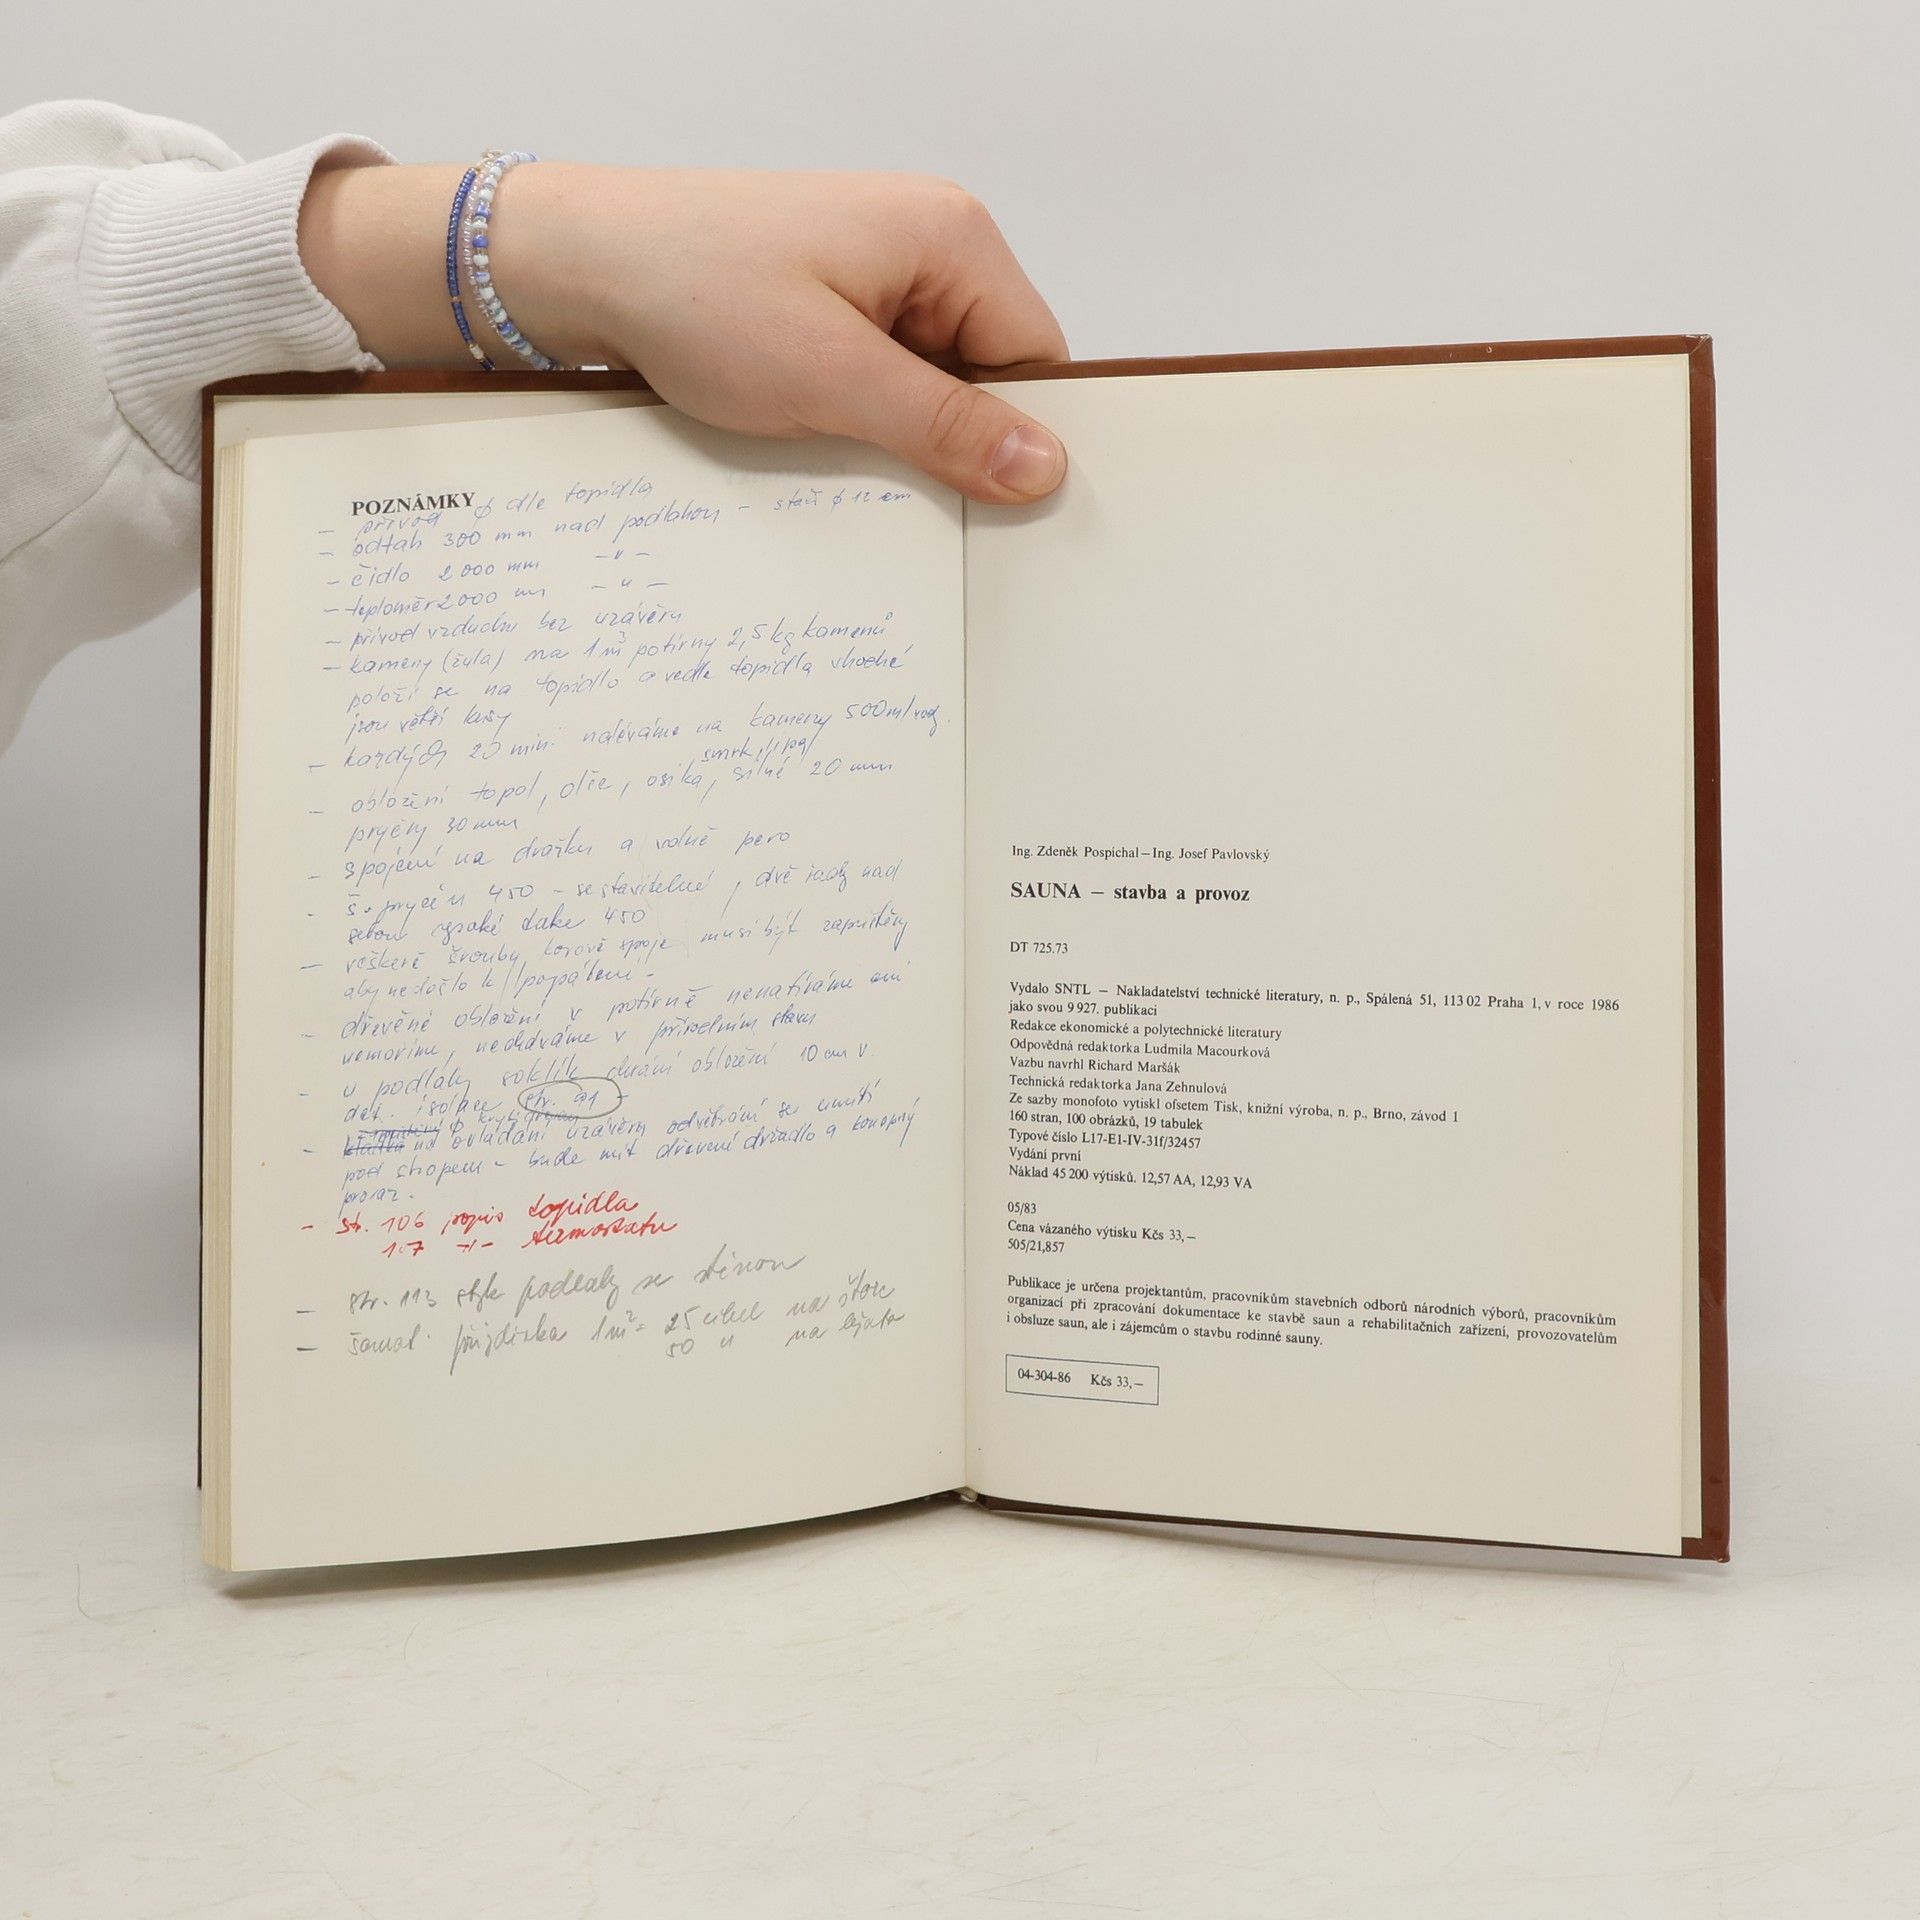 POZNÁMKY
– přívod ϕ dle topidla
– odtah 300 mm nad podlahou – stačí ϕ 12 cm
– čidlo 2000 mm –"–
– teploměr 2000 mm –"–
– přívod vzduchu bez uzávěru
– kameny (žula) na 1 m³ potírny 2,5 kg kamenů
položí se na topidlo a vedle topidla vhodné
jsou větší kusy
– každých 20 min. naléváme na kameny 500 ml vody.
smrk, lípa
– obložení topol, olše, osika, silné 20 mm
pryčny 30 mm
– spojení na drážku a volné pero
- š. pryčen 450 – sestavitelné, dvě řady nad
sebou vysoké také 450
– veškeré šrouby kovové spoje musí být zapuštěny
aby nedošlo k popálení –
– dřevěné obložení v potírně nenatíráme ani
nemoříme, necháváme v přírodním stavu
- u podlahy soklík chrání obložení 10 cm v.
det. izolace str. 91 –
- ovládání uzávěru odvětrání se umístí
pod stropem – bude mít dřevěné držadlo a konopný
provaz.
– str. 106 popis topidla
107 –"– termostatu
– str. 113 styk podlahy se stěnou
– šamot. přizdívka 1 m² = 25 cihel na štor
50 " na ležato
Ing. Zdeněk Pospíchal – Ing. Josef Pavlovský
SAUNA – stavba a provoz
DT 725.73
Vydalo SNTL – Nakladatelství technické literatury, n. p., Spálená 51, 113 02 Praha 1, v roce 1986
jako svou 9 927. publikaci
Redakce ekonomické a polytechnické literatury
Odpovědná redaktorka Ludmila Macourková
Vazbu navrhl Richard Maršák
Technická redaktorka Jana Zehnulová
Ze sazby monofoto vytiskl ofsetem Tisk, knižní výroba, n. p., Brno, závod 1
160 stran, 100 obrázků, 19 tabulek
Typové číslo L17-E1-IV-31f/32457
Vydání první
Náklad 45 200 výtisků. 12,57 AA, 12,93 VA
05/83
Cena vázaného výtisku Kčs 33,–
505/21,857
Publikace je určena projektantům, pracovníkům stavebních odborů národních výborů, pracovníkům
organizací při zpracování dokumentace ke stavbě saun a rehabilitačních zařízení, provozovatelům
i obsluze saun, ale i zájemcům o stavbu rodinné sauny.
04-304-86 Kčs 33,–